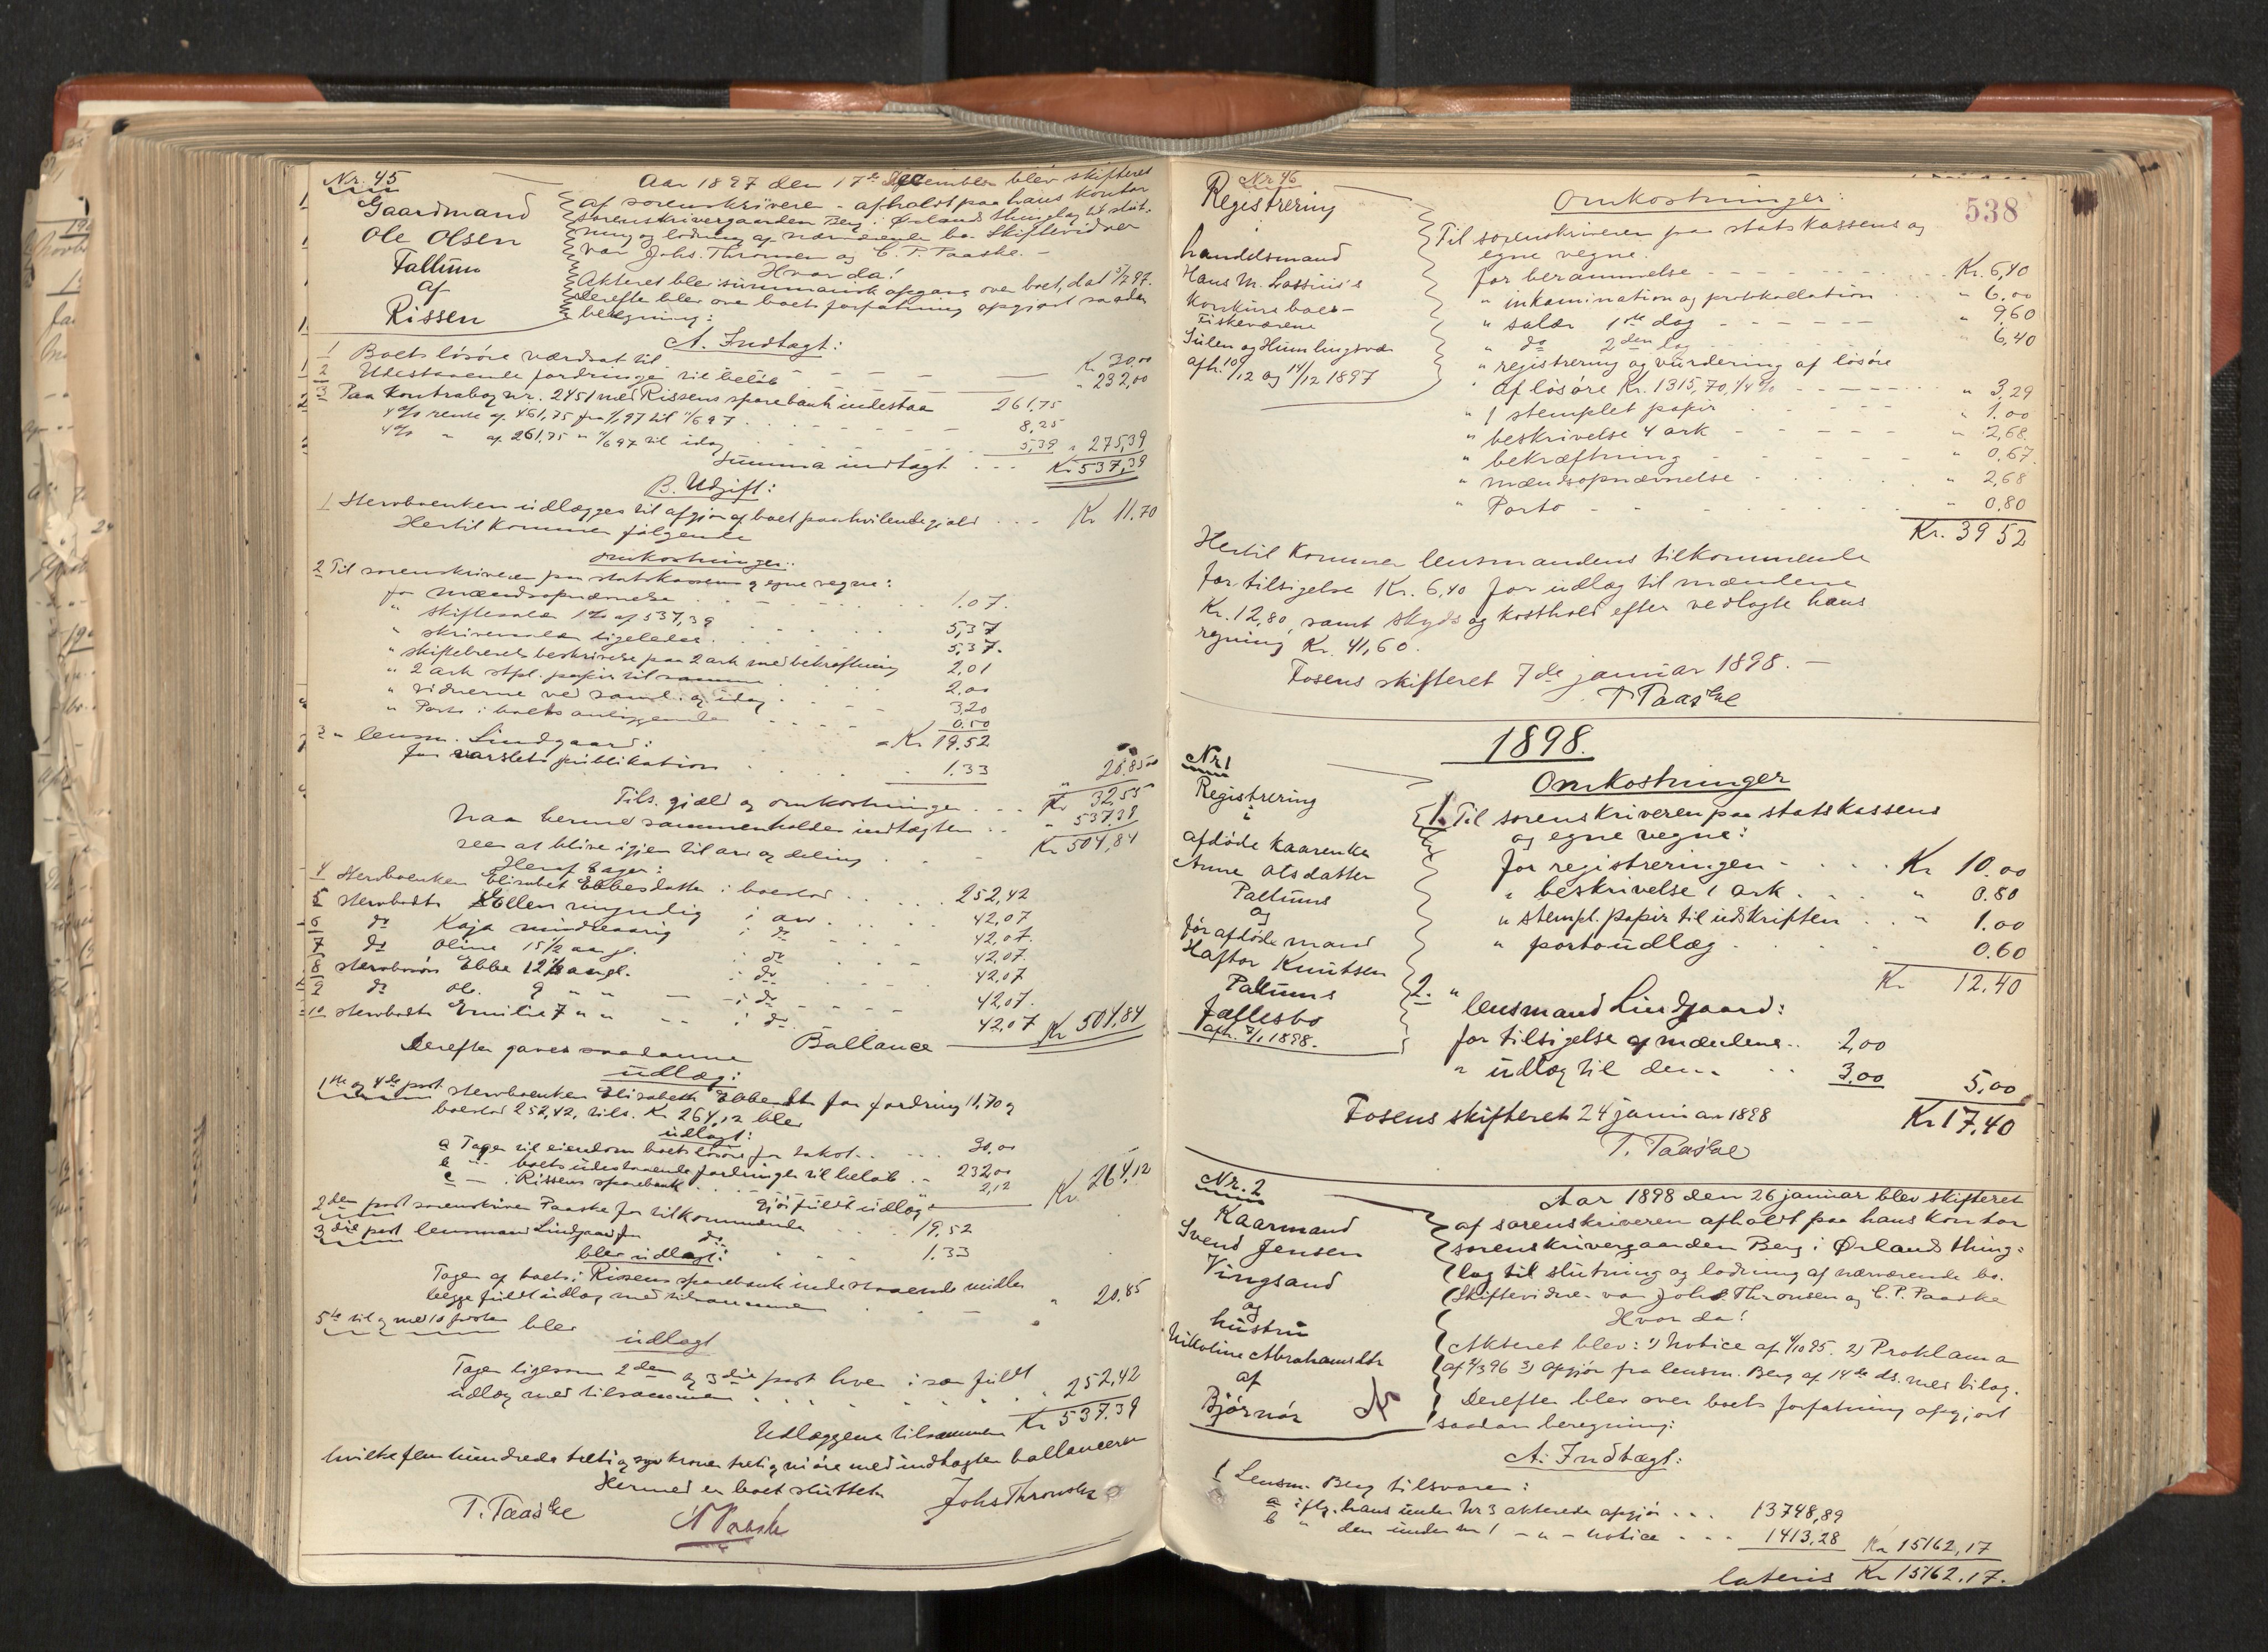 Nr. 45
Gaardmand
Ole Olsen
Fallum
af
Rissen
Aar 1897 den 17de December blev skifteret
af sorenskriveren afholdt paa hans kontor
sorenskrivergaarden Berg i Ørlands thinglag til slut-
ning og lodning af nærværende bo. Skiftevidner
var Johs. Thronsen og C. P. Paaske. -
Hvor da!
Akteret blev summarisk opgave over boet, dat
Derefter blev over boets forfatning opgjort saadan
beregning:
A. Indtægt:
1 Boets løsøre værdsat til Kr. 30,00
2 Udestaaende fordringer til beløb " 232,00
3 Paa Kontrabog nr. 2451 med Rissens sparebank indestaar 261,75
4% rente af 461,75 fra 1/1 97 til 11/6 97 8,25
4% " af 261,75 " 11/6 97 til idag 5,39 " 275,39
Summa indtægt Kr. 537,39
B. Udgift:
1 Stervboenken udlægges til afgjør af boet paahvilende gjæld Kr 11.70
Hertil kommer følgende
omkostninger:
2 Til sorenskriveren paa statskassens og egne vegne:
for mændsopnævnelse 1.07.
" skiftesalær 1% af 537,39 5,37
" skriversalær ligeledes 5,37.
" skiftebrevets beskrivelse paa 2 ark med bekræftning 2,01
" 2 ark stpl. papir til samme 2,00
" vidnerne ved saml. og idag 3,20
" Porto i boets anliggender 0.50
= Kr 19.52
3 " lensm. Lindgaard:
for varslets publikation 1.33 " 20,85
Tils. gjæld og omkostninger Kr 32,55
Naar hermed sammenholdes indtægten " 537,39
sees at blive igjen til arv og deling Kr 504,84
Heraf tager:
4 Stervboenken Elisabet Ebbesdatter i boeslod 252,42
5 stervbodtr Ellen myndig i arv 42,07
6 do Kaja mindreaarig i do 42,07.
7 do Oline 15 1/2 aar gl. i do 42,07.
8 stervbosøn Ebbe 12 1/2 aar gl. i do 42,07
9 do Ole 9 " " i do 42,07.
10 stervbodtr Emilie 7 " " i do 42,07 Kr 504,84
Ballance
Derefter gaves saadanne
udlæg:
1ste og 4de post stervboenken Elisabeth Ebbesdtr for fordring 11,70 og
boeslod 252,42, tils. Kr 264,12 blev
udlagt:
a Tager til eiendom boets løsøre for takst 30,00
b " boets udestaaende fordringer til beløb 232,00
c — i Rissens sparebank 2,12 Kr. 264,12
gjør fuldt udlæg
2den post sorenskriver Paaske for tilkommende 19,52
3die post lensmand Lindgaard for do 1.33
blev udlagt:
Tager af boets i Rissens sparebank indestaaende midler
begge fuldt udlæg med tilsammen " 20,85
5te til og med 10 poster blev
udlagt
Tager ligesom 2den og 3die post hver i sær fuldt
udlæg med tilsammen " 252,42
Udlæggene tilsammen Kr 537.39
hvilke fem hundrede treti og syv kroner treti og ni øre med indtægten ballancerer
Hermed er boet sluttet
T. Paaske
Paaske
Johs Thronsen
538
Nr 46
Registrering
i
handelsmand
Hans M. Lassius's
Konkursboes-
Fiskeværene
Sulen og Humlingsvær
afh. 10/12 og 14/12 1897
Omkostninger:
Til sorenskriveren paa statskassens og
egne vegne:
for berammelse Kr. 6,40
" inkamination og protokollation " 6.00
" salær 1ste dag " 9,60
" do 2den dag " 6,40
" registrering og vurdering af løsøre
af løsøre Kr. 1315,70, 1/4% " 3,29
" 1 stemplet papir " 1.00
" beskrivelse 4 ark " 2,68.
" bekræftning " 0,67.
" mændsopnævnelse " 2,68
" Porto " 0,80
Kr. 39 52
Hertil kommer lensmandens tilkommende
for tilsigelse Kr. 6,40 for udlæg til mændene
Kr. 12,80, samt skyds og kosthold efter vedlagte hans
regning Kr. 41,60.
Fosens skifteret 7de januar 1898. -
T Paaske
1898.
Nr 1
Registrering
i
afdøde kaarenke
Anne Olsdatter
Pallums
og
før afdøde mand
Haftor Knutsen
Pallums
Fællesbo
afh. 7/1 1898.
Omkostninger
1. Til sorenskriveren paa statskassens
og egne vegne:
for registreringen Kr 10.00
" beskrivelse 1 ark " 0.80
" stempl. papir til udskriften " 1.00
" portoudlæg 0.60
Kr 12.40
2. " lensmand Lindgaard:
for tilsigelse af mændene 2,00
" udlæg til dem 3,00 5,00
Kr 17.40
Fosens skifteret 24 januar 1898
T. Paaske
Nr. 2
Kaarmand
Svend Jensen
Vingsand
og
hustru
Nikoline Abrahamsdtr
af
Bjørnør
Aar 1898 den 26 januar blev skifteret
af sorenskriveren afholdt paa hans kontor
sorenskrivergaarden Berg i Ørlands thing-
lag til slutning og lodning af nærværende bo.
Skiftevidner var Johs. Thronsen og C. P. Paaske
Hvor da!
Akteret blev: 1) Notice af 4/10 95. 2) Proklama
af 4/3 96 3) Opgjør fra lensm. Berg af 14de ds. med bilag.
Derefter blev over boets forfatning opgjort
saadan beregning:
A. Indtægt:
1 Lensm. Berg tilsvarer:
a iflg. hans under Nr 3 akterede opgjør 13748,89
b " den under nr 1 - " - notice 1413,28 Kr 15162,17
lateris Kr 15162.17.